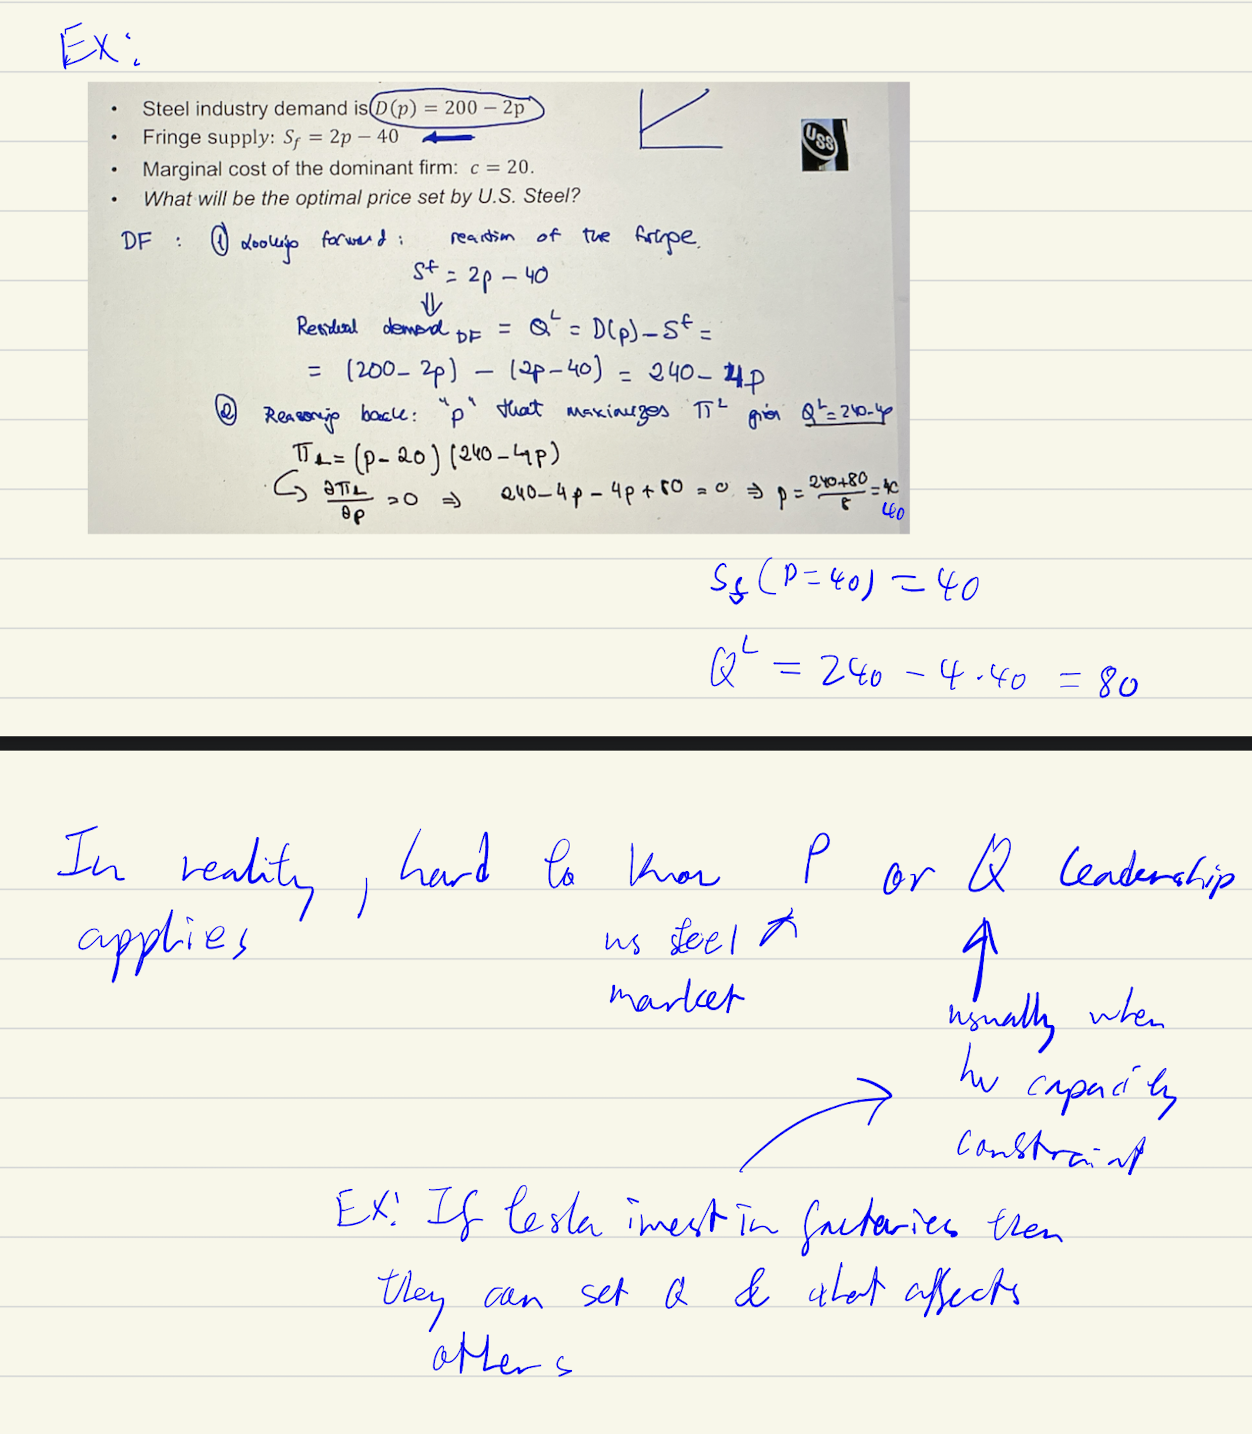 Ex:
• Steel industry demand is D(p) = 200 − 2p
• Fringe supply: S_f = 2p − 40
• Marginal cost of the dominant firm: c = 20.
• What will be the optimal price set by U.S. Steel?
USS
DF : ① Looking forward: reaction of the fringe.
S^f = 2p − 40
⇓
Residual demand DF = Q^L = D(p) − S^f =
= (200 − 2p) − (2p − 40) = 240 − 4p
② Reasoning back: "p" that maximizes π^L given Q^L = 240 − 4p
π_L = (p − 20) (240 − 4p)
↪ ∂π_L/∂p = 0 ⇒ 240 − 4p − 4p + 80 = 0 ⇒ p = (240+80)/8 = 40
40
S_f (P = 40) = 40
Q^L = 240 − 4 · 40 = 80
In reality, hard to know P or Q leadership
applies
us steel
market
usually when
hv capacity
constraint
Ex: If tesla invest in factories then
they can set Q & that affects
others